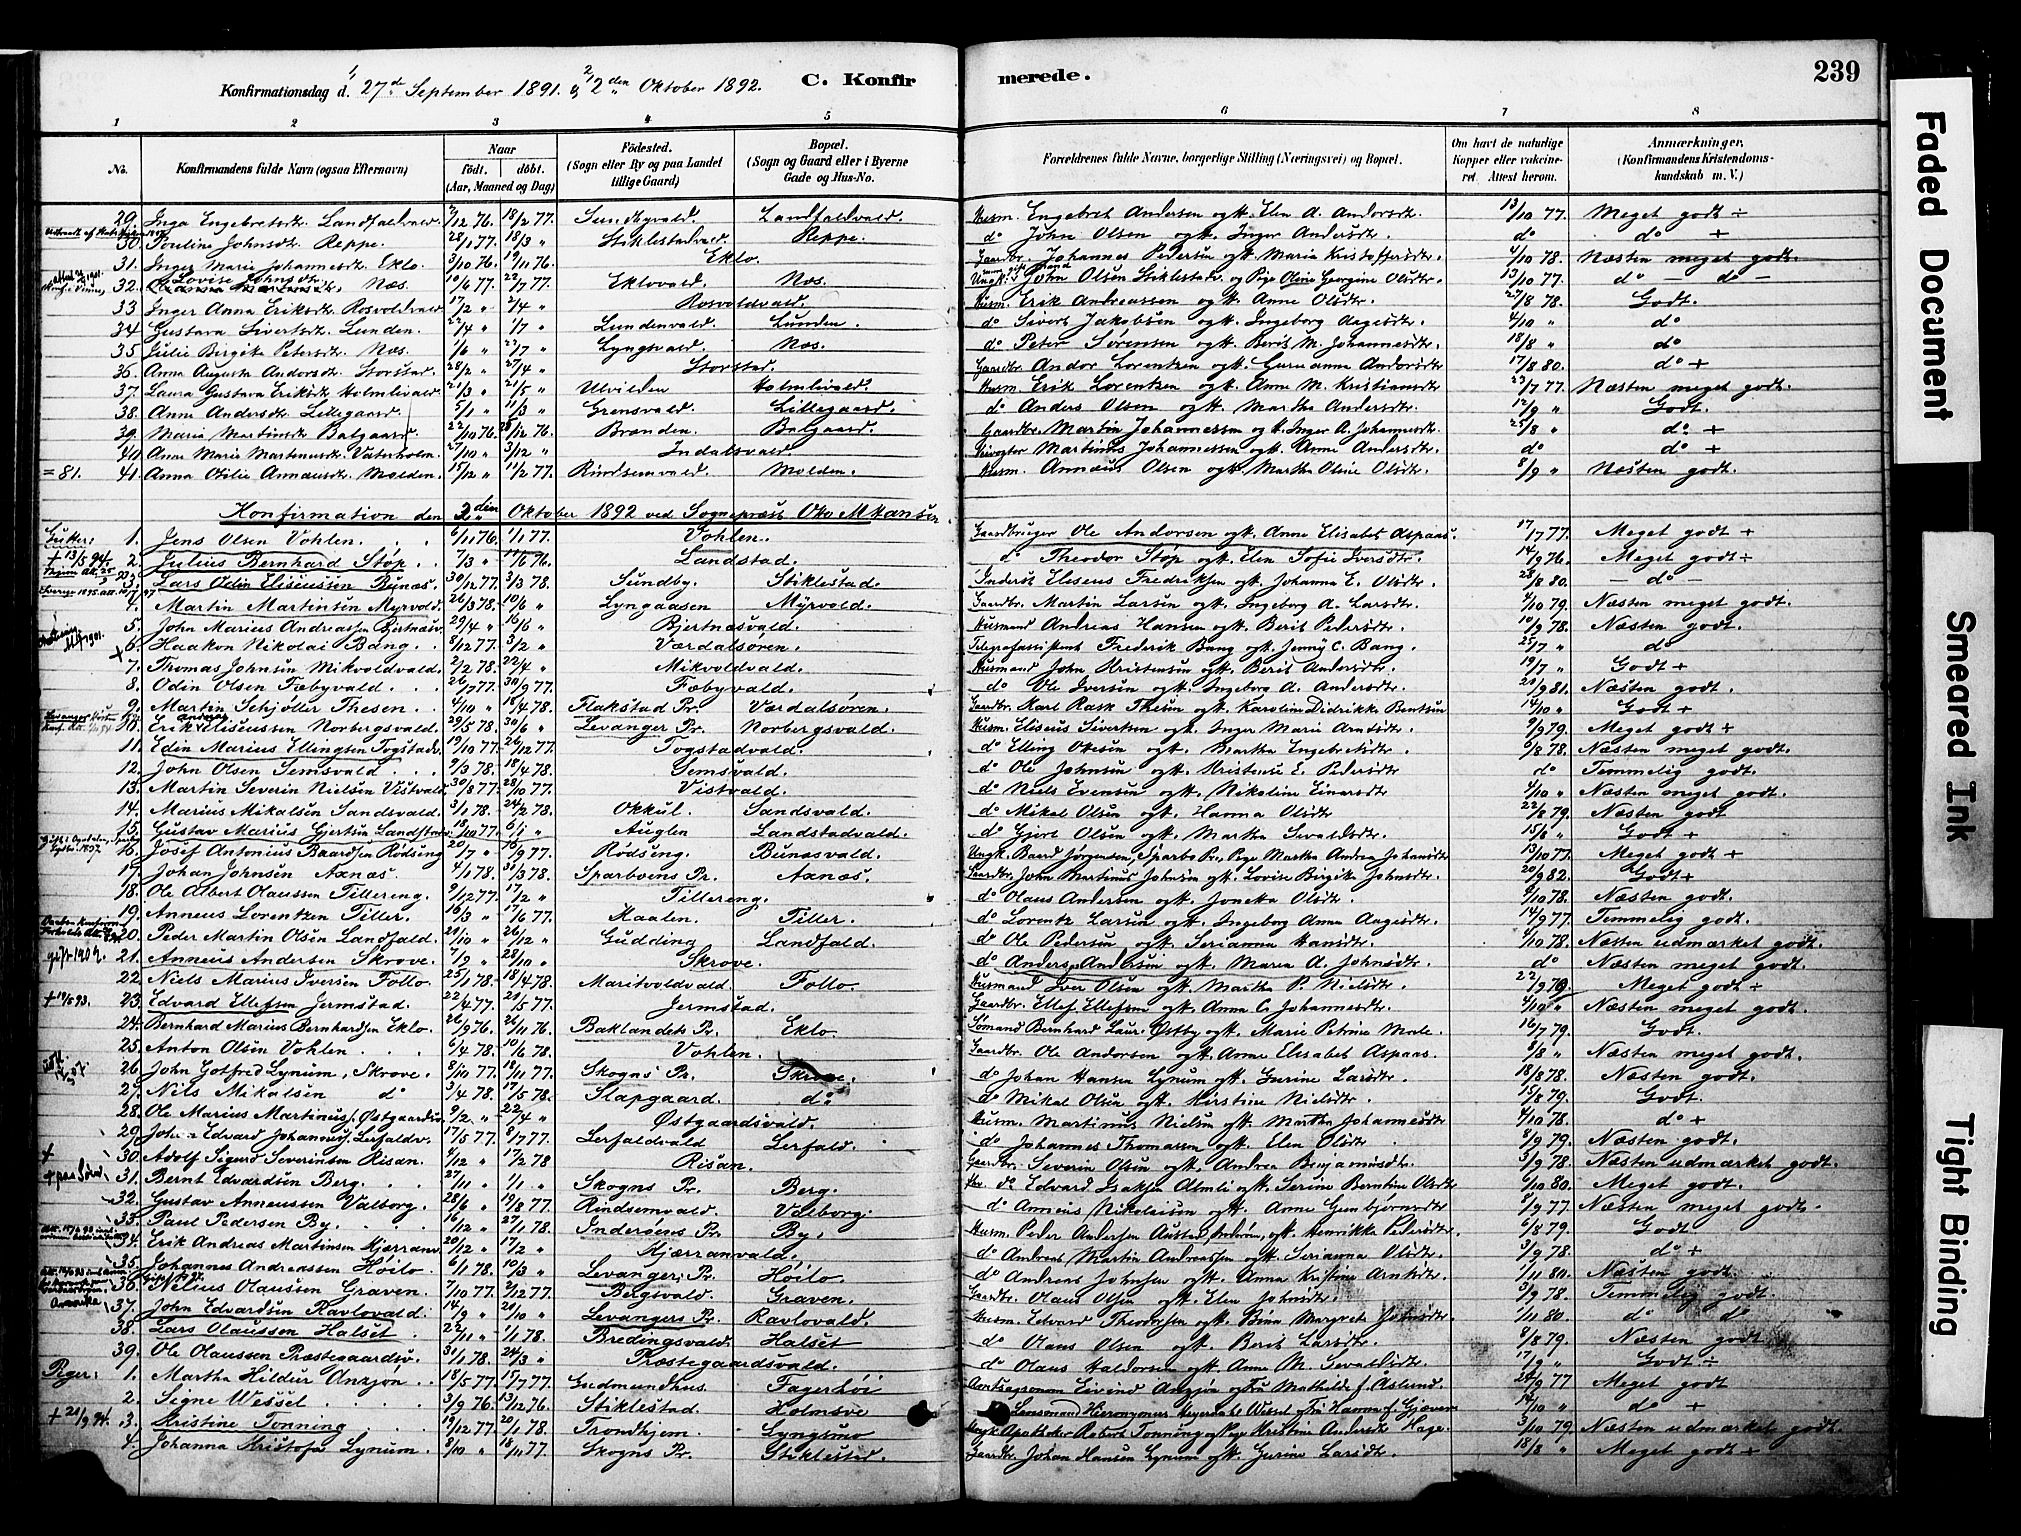 Konfirmationsdag d. 27de September 1891. og 2den Oktober 1892. C. Konfir
merede. 239
1 2 3 4 5 6 7 8
No. Konfirmandens fulde Navn (ogsaa Efternavn) Naar født. døbt. (Aar, Maaned og Dag) Fødested. (Sogn eller By og paa Landet tillige Gaard) Bopæl. (Sogn og Gaard eller i Byerne Gade og Hus-No.) Forældrenes fulde Navne, borgerlige Stilling (Næringsvei) og Bopæl. Om havt de naturlige Kopper eller vakcineret. Attest herom. Anmærkninger. (Konfirmandens Kristendomskundskab m. V.)
29. Inga Engebretsdt. Landfaldvald. 18/2 77. Sundbyvald. Landfaldvald. Husm. Engebret Andersen og H. Elen A. Andersdt. 13/10 77. Meget godt +
30. Pauline Johnsdt. Reppe. 28/1 77. 18/3 " Stiklestadvald. Reppe. do John Olsen og H. Inger Andersdt. do do +
31. Inger Marie Johannesdt. Eklo. 3/10 76. 19/11 76. Eklo. Gaardbr. Johannes Pedersen og H. Maria Kristoffersdtr. 4/10 78. Næsten meget godt.
32. Næs. 10/6 77. 22/7 77. Eklovald. Næs. John Olsen Stiklestad og Pige Oline Georgine Olsdtr. 13/10 77. do do
33 Inger Anna Eriksdt. Rosvoldvald 17/2 " 2/4 " Rosvoldvald. Husm. Erik Andreassen og H. Anne Olsdtr. 8 78. Godt.
34 Gustava Sivertsdt. Lunden. 22/4 " 1/7 " Lundenvald. Lunden. do Sivert Jakobsen og H. Ingeborg Aagesdtr. 4/10 " do
35 Julie Birgitte Petersdt. Næs. 1/6 " 22/7 " Lyngsvald. Næs. do Peter Sørensen og H. Berit M. Johannesdtr. 18/8 " do
36. Anna Augusta Andorsdt. Storstad. 28/2 " 27/4 " Storstad. Gaardbr. Andor Lorentzen og H. Guruanna Andersdtr 17/8 80. do +
37. Laura Gustava Eriksdt. Holmlivald. 21/3 " 21/5 " Ulvilden Holmlivald. Husm. Erik Lorentzen og H. Anne M. Kristiansdt. 23/7 77. Næsten meget godt.
38. Anne Andersdt. Lillegaard. 5/1 " 11/3 " Grensvald. Lillegaard. do Anders Olsen og H. Martha Andersdtr. 12/9 " Godt.
39. Maria Martinsdt. Balgaard. 22/10 76. 12 76. Branden. Balgaard. Gaardbr. Martin Johannessen og H. Inger A. Johannesdt. 25/8 " do +
40 Anne Marie Martinusdt. Vaterholm. 27/10 " 3/12 " Indalsvald. Martinus Johannessen og H. Anne Andersdtr. do do +
= 81. 41. Anna Otilie Annæusdtr. Molden. 15/12 " 11/2 77. Rindsemvald. Molden. Husm. Annæus Olsen og H. Martha Oline Olsdtr. 8/9 " Næsten godt.
Konfirmation den 2den Oktober 1892 ved Sogneprest Otto M. Hansen
Gutter: 1. Jens Olsen Vohlen. 6/11 76. 1/1 77. Vohlen. Gaardbruger Ole Andorsen og H. Anne Elisabet Aspaas. 17/7 77. Meget godt +
+ 13/5 94. 2. Julius Bernhard Støp. 7/3 " 11/6 76. Landstad. do Theodor Støp og H. Elen Sofie Iversdtr. 14/9 76. Meget godt +
3. Lars Odin Eliseussen Bunæs. 30/12 77. 3/3 78. Sundby. Stiklestad. Inderst Eliseus Fredriksen og H. Johanna E. Olsdtr. 28/8 80. do
4. Martin Martinsen Myrvold. 26/3 78. 10/6 " Lyngaasen Myrvold. Gaardbr. Martin Larsen og H. Ingeborg A. Larsdtr. 4/10 79. Næsten meget godt.
5. John Marius Andreassen Bjertnæsv. 29/4 " 16/6 " Bjertnæsvald. Husmand Andreas Hansen og H. Berit Pedersdtr. 19/9 78. Næsten godt.
6. Haakon Nikolai Bang. 8/12 77. 3/2 " Værdalsøren. Telegrafassistent Frederik Bang og H. Jenny C. Bang. 25/7 " do
7. Thomas Johnsen Mikvoldvald. 2/2 78. 22/4 " Mikvoldvald. Husmand John Kristensen og H. Berit Andersdtr. 19/7 " Godt +
8. Odin Olsen Fæbyvald. 26/7 77. 30/9 77. Fæbyvald. do Ole Iversen og H. Ingeborg A. Andersdtr. 21/9 81. Næsten godt.
9. Martin Schjøller Thesen. 4/10 " 18/4 78. Flakstad Pr. Værdalsøren. Karl Rask Thesen og H. Karoline Didrikke Bentsen 14/10 " Godt +
10. Erik Eliseussen Norbergsvald. 29/5 78. 30/6 " Levanger Pr. Norbergsvald. Husm. Eliseus Sivertsen og H. Inger Marie Arntsdtr. 9/9 79. Meget godt +
11. Edin Marius Ellingsen Togstadv. 19/10 77. 26/12 77. Togstadvald. do Elling Olesen og H. Martha Engebretsdtr. 6/8 78. Næsten meget godt.
12. John Olsen Semsvald 9/3 78. 18/4 78. Semsvald. do Ole Johnsen og H. Kristense E. Pedersdtr do Temmelig godt.
13. Martin Severin Nielsen Vistvald 30/8 77. 28/10 77. Vistvald. do Niels Evensen og H. Nikoline Einarsdtr 4/10 " Næsten meget godt.
14. Marius Mikalsen Sandsvald. 3/1 78. 24/2 78. Okkul. Sandsvald. do Mikal Olsen og H. Hanna Olsdtr 22/2 79. Næsten godt
15. Gustav Marius Gjertsen Landstadv. 18/10 77. 6/1 " Auglen Landstadvald. do Gjert Olsen og H. Martha Sevaldsdtr. Godt +
16. Josef Antonius Baardsen Rødseng 20/7 " 16/9 77. Rødseng. Bunæsvald. Ungk. Baard Jørgensen, Sparbo Pr., Pige Martha Andrea Johansdtr 13/10 77. Meget godt +
17. Johan Johnsen Axnæs. 4/1 78. 31/3 78. Sparboens Pr. Axnæs. Gaardbr. John Martinus Johnsen og H. Lovise Birgitte Johnsdtr. 20/9 82. Godt +
18. Ole Albert Olaussen Tillereng. 9/12 77. 17/2 " Tillereng. do Olaus Andersen og H. Joneta Olsdtr. 4/10 78. Næsten godt.
19. Anneus Lorentzen Tiller. 16/3 " 17/6 77. Haalen. Tiller. do Lorentz Larsen og H. Ingeborg Anna Aagesdtr. 14/9 77. Temmelig godt.
20. Peder Martin Olsen Landfald. 21/10 " 26/12 " Gudding Landfald. do Ole Pedersen og H. Serianna Hansdtr. 4/10 78. Næsten udmærket godt.
gift 1902. 21. Anneus Andersen Skrove. 7/9 " 28/10 " Skrove. do Anders Andersen og H. Maren A. Johnsdtr. do Næsten meget godt.
22. Niels Marius Iversen Follo. 25/1 78. 18/4 78. Maritvoldvald. Follo. Husmand Iver Olsen og H. Martha P. Nielsdtr. 22/9 79 Meget godt +
+ 19/5 93. 23. Edvard Ellefsen Jermstad. 22/4 77. 21/5 77. Jermstad. Gaardbr. Ellef Ellefsen og H. Anna C. Johannesdtr. 4/10 " Næsten meget godt.
24. Bernhard Marius Bernhardsen Eklo. 26/9 76. 26/11 76. Baklandets Pr. Eklo. Sømand Bernhard Laur. Østby og H. Marie Petrine Moe. 16/7 79. Godt.
25. Anton Olsen Vohlen. 6/4 78. 10/6 78. Vohlen. Gaardbr. Ole Andorsen og H. Anne Elisabet Aspaas. 8/8 " Næsten meget godt.
26. John Gotfred Lynum, Skrove. 8/10 77. 18/11 77. Skogns Pr. Skrove. do Johan Hansen Lynum og H. Gurine Larsdtr. 18/8 78. Næsten godt.
27. Nils Mikalsen do 3/4 78. 17/5 78. Slapgaard do. do Mikal Olsen og H. Kirstine Nielsdtr. 15/8 79. Godt.
28. Ole Marius Martinus. Østgaardsv. 9/2 " 22/4 " Østgaardsvald. Husm. Martinus Nielsen og H. Martha Johannesdtr 4/10 78 do +
29. John Edvard Johannesf. Lerfaldv. 17/5 77. 8/7 77. Lerfaldvald Lerfald. do Johannes Thomassen og H. Elen Olsdtr. 8/9 79. Næsten godt.
+ 30. Adolf Sigurd Severinsen Risan. 4/12 " 17/2 78 Risan. Gaardbr. Severin Olsen og H. Andrea Benjaminsdtr. 3/9 78. Næsten udmærket godt.
31. Bernt Edvardsen Berg. 27/11 " 1/1 " Skogns Pr. Berg. do Edvard Isaksen Almli og H. Serine Berntine Olsdtr 6/10 80. Meget godt.
32. Gustav Anneussen Valborg. 28/6 " 19/8 77. Rindsemvald. Valborg. do Anneus Nikolaisen og H. Anne Gunbjørnsdtr 8/9 77. Næsten meget godt.
33. Paul Pedersen By. 16/12 " 27/1 78. Inderøens Pr. By. Husm. Peder Andersen Austad, og H. Henrikke Pedersdtr. 6/8 79. Godt
34. Erik Andreas Martinsen Kjærranv. 20/12 " 17/2 " Kjærranvald. do Andreas Martin Andreassen og H. Serianna Olsdtr. 3/9 78. do +
35. Johannes Andreassen Høilo. 6/1 78. 10/3 " Levanger Pr. Høilo. do Andreas Johnsen og H. Anna Kristine Arntsdtr. 1/11 80. Næsten godt.
36. Nelius Olaussen Graven. 7/10 77. 2/12 77. Bergsvald. Graven. Gaardbr. Olaus Olsen og H. Elen Johnsdtr. 3/9 78. Temmelig godt.
37. John Edvardsen Ravlovald. 14/9 " 21/10 " Levangers Pr. Ravlovald. Husm. Edvard Theodorsen og H. Bina Margrete Johnsdtr. 1/11 80 do do
38. Lars Olaussen Halset. 22/11 " 1/1 78. Bredingsvald. Halset do Olaus Olsen og H. Berit Larsdtr. 8/8 79. Næsten godt
39. Ole Olaussen Præstegaardsv. 31/1 78. 24/3 " Præstegaardsvald. do Olaus Haldorsen og H. Anne M. Sevaldsdtr. 17/9 " Godt +
Piger: 1. Martha Hildur Anzjøn 18/5 77. 15/7 77. Gudmundhus Fagerhøi Amtsagronom Eivind Anzjøn og Fru Mathilde f. Aslund. 24/9 77 Meget godt
2. Signe Wessel 3/9 76. 13/12 76. Stiklestad. Holmsve Lensmand Hieronymus Wessel og Fru Hanna f. Gjæver 14/10 " do +
+ 21/9 94. 3. Kristine Tonning 19/12 77. 20/1 78. Trondhjem. Lyngsmo Ungk. Apotheker Robert Tonning og Pige Kristine Andersdtr Hage. 3/10 79. Næsten udmærket godt.
4. Johanna Kristofa Lynum. 8/10 " 18/11 77. Skogns Pr. Stiklestad. Gaardbr. Johan Hansen Lynum og H. Gurine Larsdtr. 18/8 " Meget godt +
Faded Document
Smeared Ink
Tight Binding